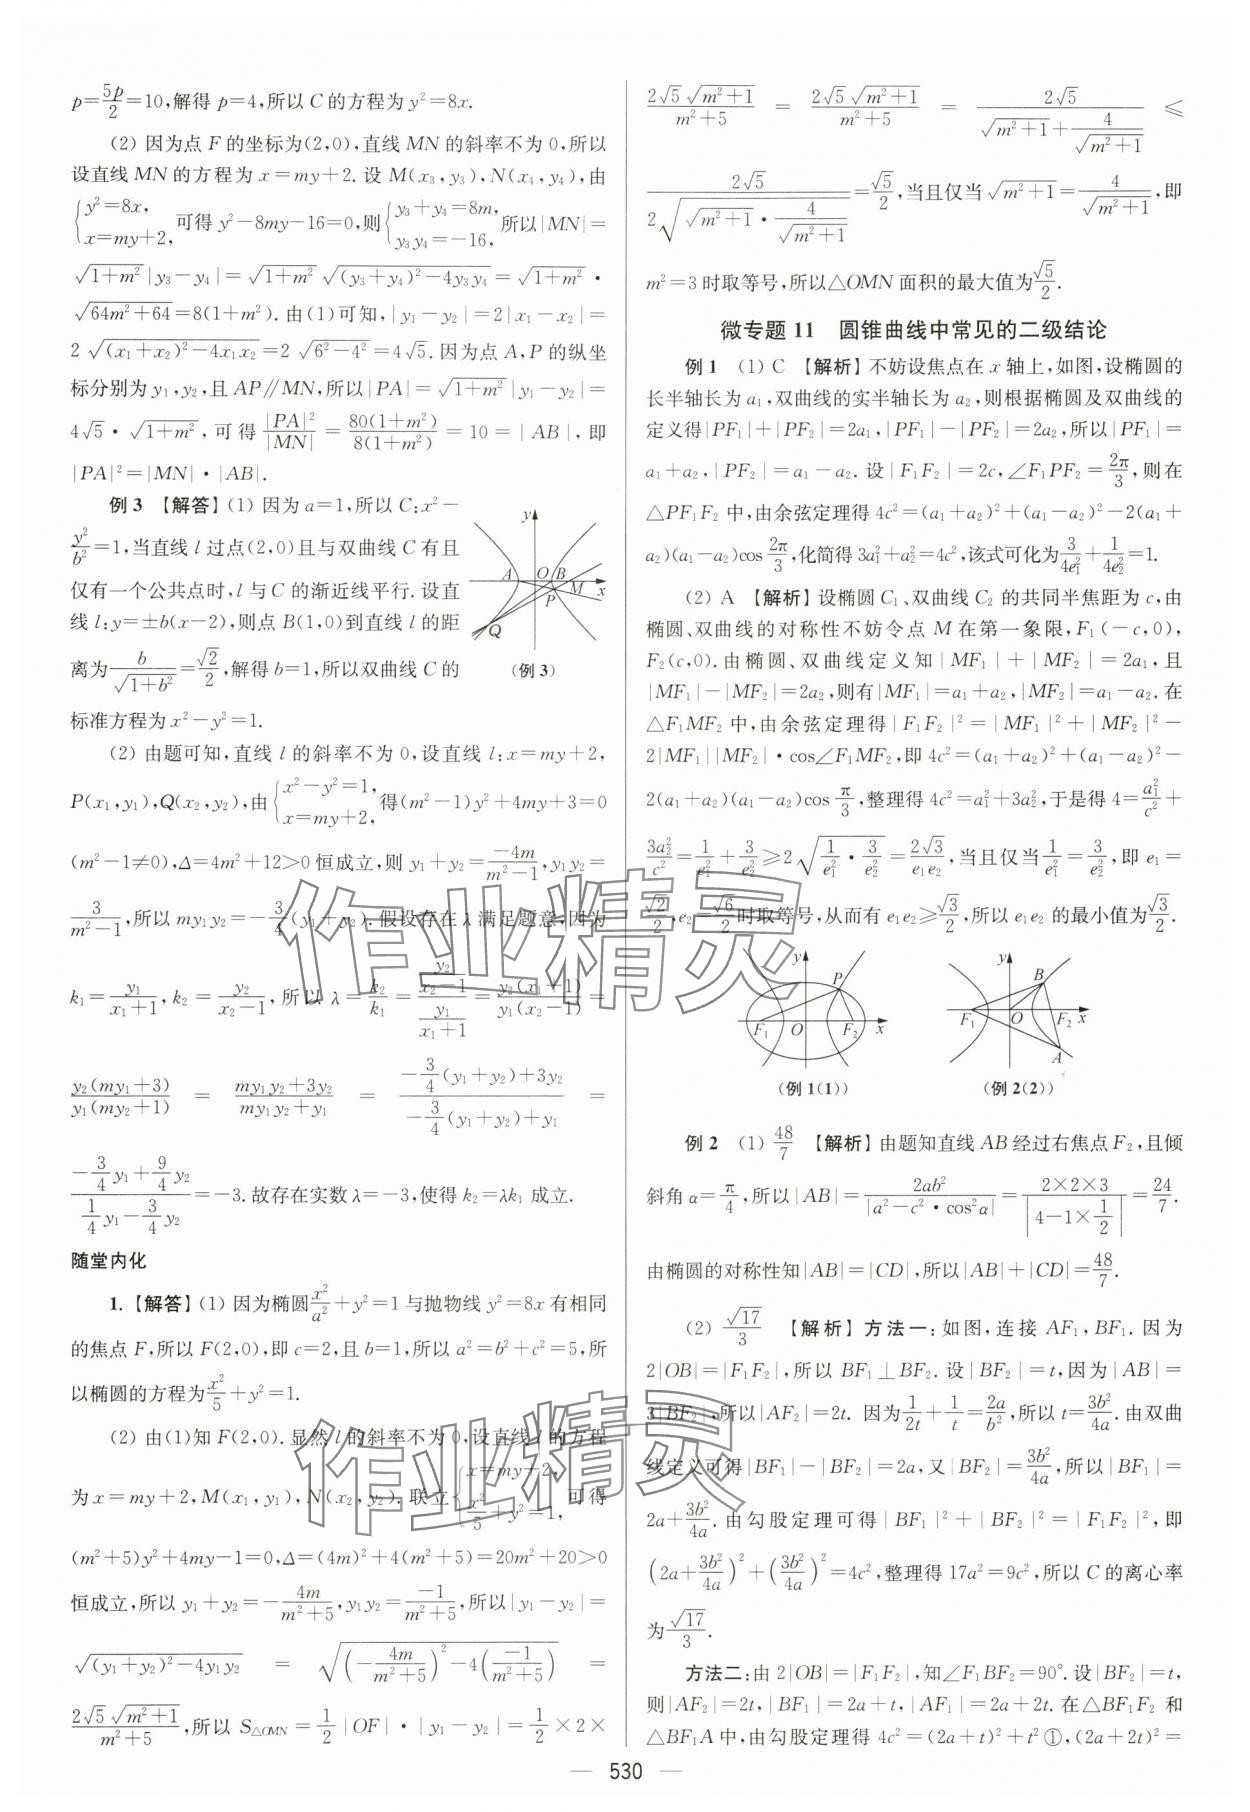 p=\frac{5p}{2}=10,解得 p=4,所以 C 的方程为 y²=8x.
(2) 因为点 F 的坐标为(2,0),直线 MN 的斜率不为 0,所以
设直线 MN 的方程为 x=my+2. 设 M(x₃,y₃),N(x₄,y₄),由
{y²=8x, x=my+2, 可得 y²-8my-16=0,则{y₃+y₄=8m, y₃y₄=-16, 所以|MN|=
√(1+m²)|y₃-y₄|=√(1+m²) √((y₃+y₄)²-4y₃y₄)=√(1+m²)·
√(64m²+64)=8(1+m²). 由(1)可知,|y₁-y₂|=2|x₁-x₂|=
2√((x₁+x₂)²-4x₁x₂)=2√(6²-4²)=4√5. 因为点 A,P 的纵坐
标分别为 y₁,y₂,且 AP∥MN,所以|PA|=√(1+m²)|y₁-y₂|=
4√5·√(1+m²),可得\frac{|PA|²}{|MN|}=\frac{80(1+m²)}{8(1+m²)}=10=|AB|,即
|PA|²=|MN|·|AB|.
例 3 【解答】(1) 因为 a=1,所以 C:x²-
\frac{y²}{b²}=1,当直线 l 过点(2,0)且与双曲线 C 有且
仅有一个公共点时,l 与 C 的渐近线平行. 设直
线 l:y=±b(x-2),则点 B(1,0)到直线 l 的距
离为\frac{b}{√(1+b²)}=\frac{√2}{2},解得 b=1,所以双曲线 C 的
标准方程为 x²-y²=1.
y
A O B M x
P
Q
(例 3)
(2) 由题可知,直线 l 的斜率不为 0,设直线 l:x=my+2,
P(x₁,y₁),Q(x₂,y₂),由{x²-y²=1, x=my+2, 得(m²-1)y²+4my+3=0
(m²-1≠0),Δ=4m²+12>0 恒成立,则 y₁+y₂=\frac{-4m}{m²-1},y₁y₂=
\frac{3}{m²-1},所以 my₁y₂=-\frac{3}{4}(y₁+y₂). 假设存在 λ 满足题意,因为
k₁=\frac{y₁}{x₁+1},k₂=\frac{y₂}{x₂-1},所以 λ=\frac{k₂}{k₁}=\frac{\frac{y₂}{x₂-1}}{\frac{y₁}{x₁+1}}=\frac{y₂(x₁+1)}{y₁(x₂-1)}=
\frac{y₂(my₁+3)}{y₁(my₂+1)}=\frac{my₁y₂+3y₂}{my₁y₂+y₁}=\frac{-\frac{3}{4}(y₁+y₂)+3y₂}{-\frac{3}{4}(y₁+y₂)+y₁}=
\frac{-\frac{3}{4}y₁+\frac{9}{4}y₂}{\frac{1}{4}y₁-\frac{3}{4}y₂}=-3. 故存在实数 λ=-3,使得 k₂=λk₁ 成立.
随堂内化
1.【解答】(1) 因为椭圆\frac{x²}{a²}+y²=1 与抛物线 y²=8x 有相同
的焦点 F,所以 F(2,0),即 c=2,且 b=1,所以 a²=b²+c²=5,所
以椭圆的方程为\frac{x²}{5}+y²=1.
(2) 由(1)知 F(2,0). 显然 l 的斜率不为 0,设直线 l 的方程
为 x=my+2,M(x₁,y₁),N(x₂,y₂). 联立{x=my+2, \frac{x²}{5}+y²=1, 可得
(m²+5)y²+4my-1=0,Δ=(4m)²+4(m²+5)=20m²+20>0
恒成立,所以 y₁+y₂=-\frac{4m}{m²+5},y₁y₂=\frac{-1}{m²+5},所以|y₁-y₂|=
√((y₁+y₂)²-4y₁y₂)=√((-\frac{4m}{m²+5})²-4(\frac{-1}{m²+5}))=
\frac{2√5 √(m²+1)}{m²+5},所以 S△OMN=\frac{1}{2}|OF|·|y₁-y₂|=\frac{1}{2}×2×
\frac{2√5 √(m²+1)}{m²+5}=\frac{2√5 √(m²+1)}{m²+5}=\frac{2√5}{√(m²+1)+\frac{4}{√(m²+1)}}≤
\frac{2√5}{2√(√(m²+1)·\frac{4}{√(m²+1)})}=\frac{√5}{2},当且仅当√(m²+1)=\frac{4}{√(m²+1)},即
m²=3 时取等号,所以△OMN 面积的最大值为\frac{√5}{2}.
微专题 11 圆锥曲线中常见的二级结论
例 1 (1) C 【解析】不妨设焦点在 x 轴上,如图,设椭圆的
长半轴长为 a₁,双曲线的实半轴长为 a₂,则根据椭圆及双曲线的
定义得|PF₁|+|PF₂|=2a₁,|PF₁|-|PF₂|=2a₂,所以|PF₁|=
a₁+a₂,|PF₂|=a₁-a₂. 设|F₁F₂|=2c,∠F₁PF₂=\frac{2π}{3},则在
△PF₁F₂ 中,由余弦定理得 4c²=(a₁+a₂)²+(a₁-a₂)²-2(a₁+
a₂)(a₁-a₂)cos\frac{2π}{3},化简得 3a₁²+a₂²=4c²,该式可化为\frac{3}{4e₁²}+\frac{1}{4e₂²}=1.
(2) A 【解析】设椭圆 C₁、双曲线 C₂ 的共同半焦距为 c,由
椭圆、双曲线的对称性不妨令点 M 在第一象限,F₁(-c,0),
F₂(c,0). 由椭圆、双曲线定义知|MF₁|+|MF₂|=2a₁,且
|MF₁|-|MF₂|=2a₂,则有|MF₁|=a₁+a₂,|MF₂|=a₁-a₂. 在
△F₁MF₂ 中,由余弦定理得|F₁F₂|²=|MF₁|²+|MF₂|²-
2|MF₁||MF₂|·cos∠F₁MF₂,即 4c²=(a₁+a₂)²+(a₁-a₂)²-
2(a₁+a₂)(a₁-a₂)cos\frac{π}{3},整理得 4c²=a₁²+3a₂²,于是得 4=\frac{a₁²}{c²}+
\frac{3a₂²}{c²}=\frac{1}{e₁²}+\frac{3}{e₂²}≥2√(\frac{1}{e₁²}·\frac{3}{e₂²})=\frac{2√3}{e₁e₂},当且仅当\frac{1}{e₁²}=\frac{3}{e₂²},即 e₁=
\frac{√2}{2},e₂=\frac{√6}{2}时取等号,从而有 e₁e₂≥\frac{√3}{2},所以 e₁e₂ 的最小值为\frac{√3}{2}.
y P F₁ O F₂ x
(例 1(1))
y B F₁ O F₂ x A
(例 2(2))
例 2 (1) \frac{48}{7} 【解析】由题知直线 AB 经过右焦点 F₂,且倾
斜角 α=\frac{π}{4},所以|AB|=\frac{2ab²}{|a²-c²·cos²α|}=\frac{2×2×3}{|4-1×\frac{1}{2}|}=\frac{24}{7}.
由椭圆的对称性知|AB|=|CD|,所以|AB|+|CD|=\frac{48}{7}.
(2) \frac{√17}{3} 【解析】方法一:如图,连接 AF₁,BF₁. 因为
2|OB|=|F₁F₂|,所以 BF₁⊥BF₂. 设|BF₂|=t,因为|AB|=
3|BF₂|,所以|AF₂|=2t. 因为\frac{1}{2t}+\frac{1}{t}=\frac{2a}{b²},所以 t=\frac{3b²}{4a}. 由双曲
线定义可得|BF₁|-|BF₂|=2a,又|BF₂|=\frac{3b²}{4a},所以|BF₁|=
2a+\frac{3b²}{4a}. 由勾股定理可得|BF₁|²+|BF₂|²=|F₁F₂|²,即
(2a+\frac{3b²}{4a})²+(\frac{3b²}{4a})²=4c²,整理得 17a²=9c²,所以 C 的离心率
为\frac{√17}{3}.
方法二:由 2|OB|=|F₁F₂|,知∠F₁BF₂=90°. 设|BF₂|=t,
则|AF₂|=2t,|BF₁|=2a+t,|AF₁|=2a+2t. 在△BF₁F₂ 和
△BF₁A 中,由勾股定理得 4c²=(2a+t)²+t²①,(2a+2t)²=
— 530 —
作业精灵
作业精灵